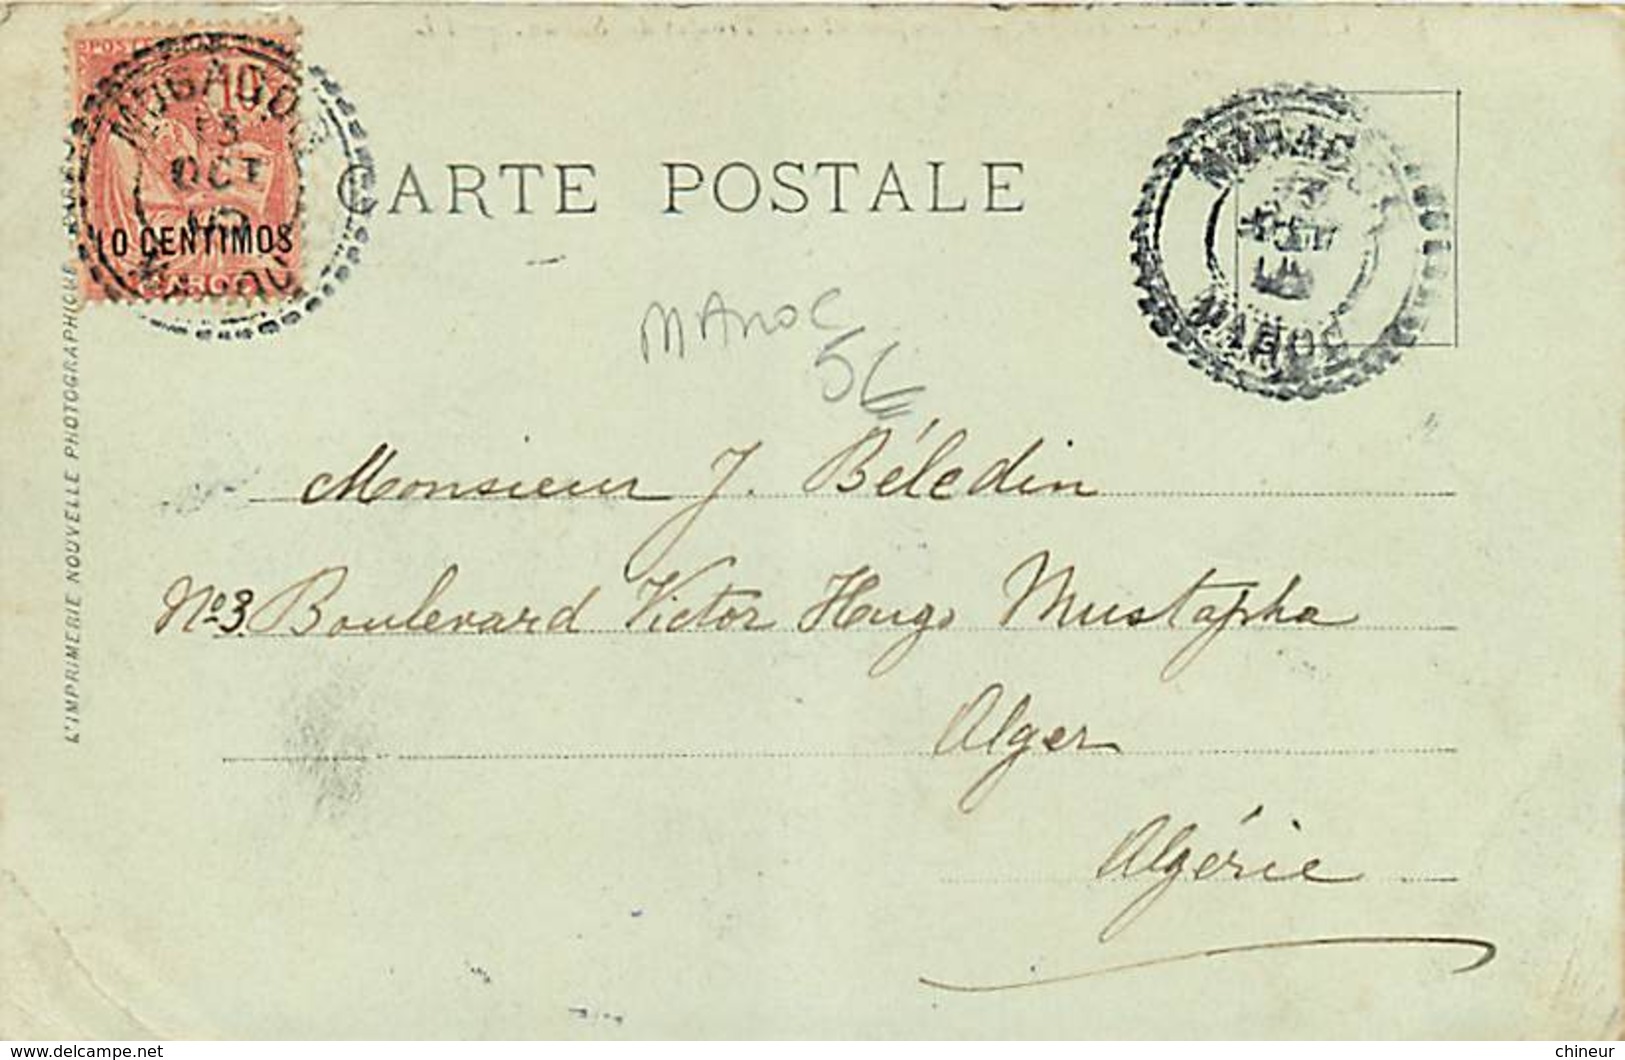 POSTE
10
MOGADOR
13
OCT
10 CENTIMOS
MAROC
MAROC
CARTE POSTALE
MOGADOR
MAROC
MAROC
5€
Monsieur J. Béledin
No 3. Boulevard Victor Hugo Mustapha
Alger
Algérie
L'IMPRIMERIE NOUVELLE PHOTOGRAPHIQUE
www.delcampe.net
chineur